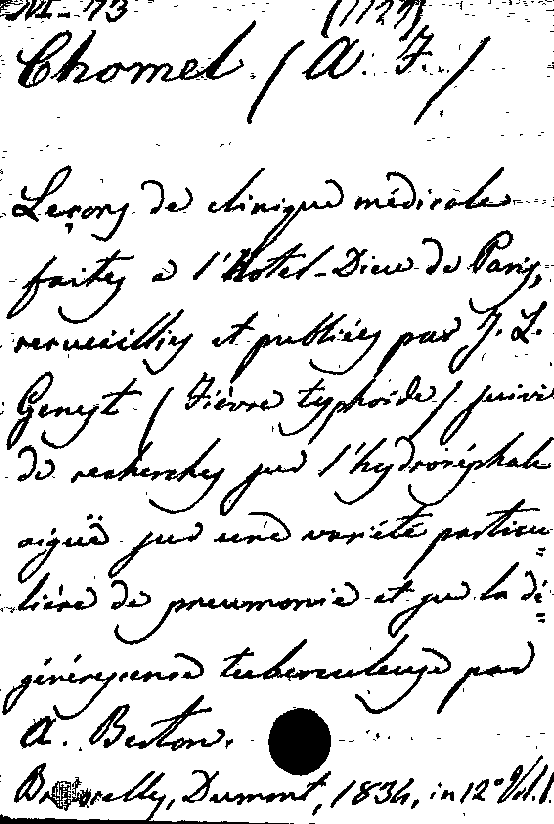 M-73 (1127)
Chomel (A. F.)
Leçons de clinique médicale
faites à l'Hotel-Dieu de Paris,
recueillies et publiées par J. L.
Genest (Fièvre typhoïde) suivi
de recherches sur l'hydrocéphale
aiguë sur une variété particu=
lière de pneumonie et sur la dé=
générescence tuberculeuse par
A. Berton.
Bruxelles, Dumont, 1834, in 12° Vol. 1.